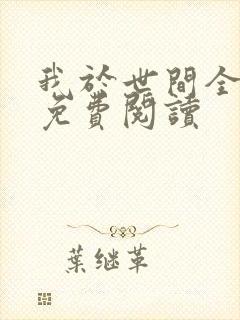 我於世間全
免費閱讀
葉继革